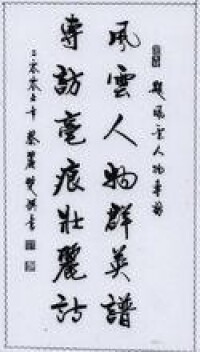 題風雲人物專訪
風雲人物群英譜
專訪毫痕壯麗詩
二零零年 蔡麗雙撰書